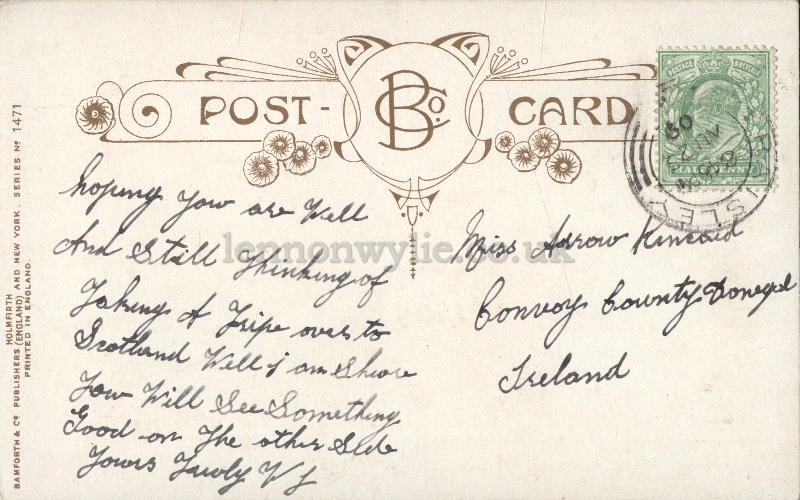 POST-CARD
B & Co.
POSTAGE REVENUE
HALFPENNY
PAISLEY
09
lennonwylie.co.uk
hoping yow are Well
And Still Thinking of
Taking A Tripe over to
Scotland Well i am Shure
Yow Will See Something
Good on The other Side
Yours Truly W J
Miss Arrow Kincaid
Convoy County Donegal
Ireland
HOLMFIRTH
BAMFORTH & Co PUBLISHERS (ENGLAND) AND NEW YORK · SERIES No 1471
PRINTED IN ENGLAND.